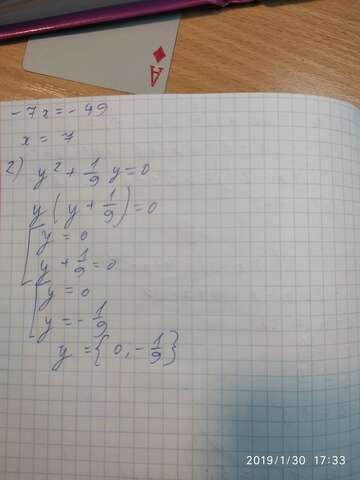 A
-7x = -49
x = 7
2) y² + 1/9 y = 0
y(y + 1/9) = 0
[y = 0
y + 1/9 = 0
[y = 0
y = -1/9
y = {0, -1/9}
2019/1/30 17:33